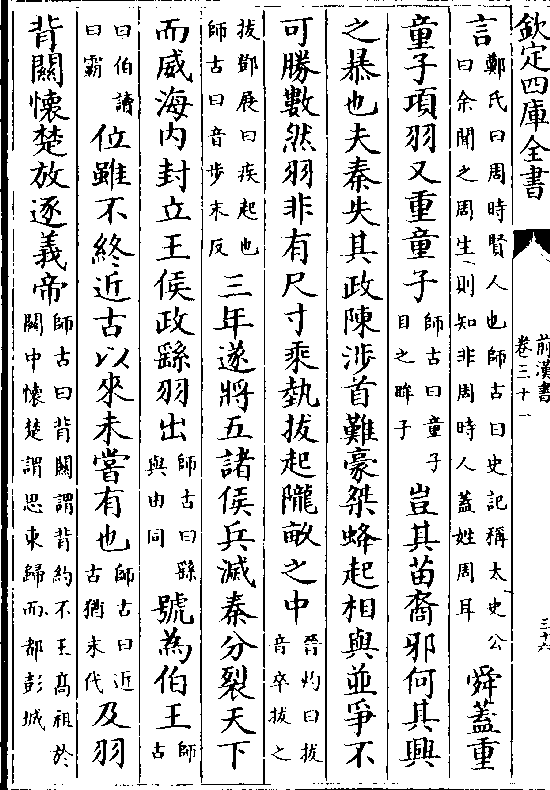 欽定四庫全書
前漢書
卷三十一
三十六
言鄭氏曰周時賢人也師古曰史記稱太史公曰余聞之周生則知非周時人蓋姓周耳舜蓋重
童子項羽又重童子師古曰童子目之眸子豈其苗裔邪何其興
之暴也夫秦失其政陳涉首難豪桀蜂起相與並爭不
可勝數然羽非有尺寸乘埶拔起隴畝之中晉灼曰拔音卒拔之
拔鄧展曰疾起也師古曰音步末反三年遂將五諸侯兵滅秦分裂天下
而威海内封立王侯政繇羽出師古曰繇與由同號為伯王師古
曰伯讀曰霸位雖不終近古以來未嘗有也師古曰近古猶末代及羽
背關懷楚放逐義帝師古曰背關謂背約不王髙祖於關中懷楚謂思東歸而都彭城